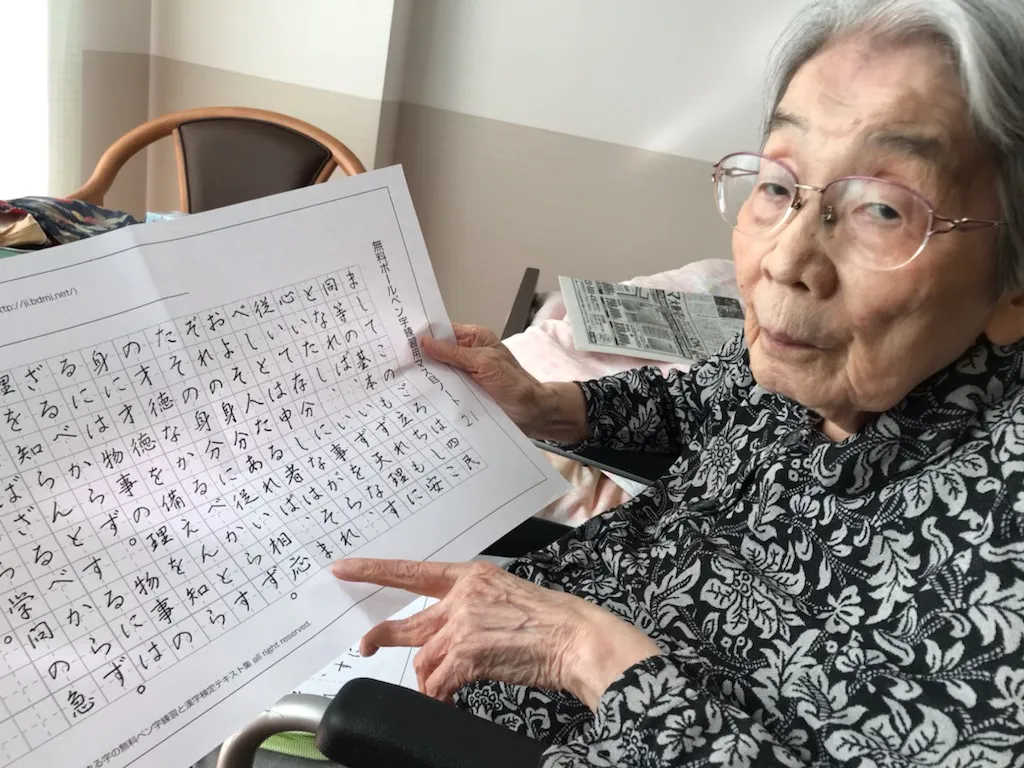 無料ボールペン字練習用マス目シート(2)
ましてこのごろは四民
同等の基本も立ちしこ
となれば、いずれも安
心いたし、ただ天理に
従いて存分に事をなす
べしとは申しながら、
およそ人たる者はそれ
ぞれの身分あれば、ま
たその身分に従い相応
の才徳なかるべからず。
身に才徳を備えんとす
るには物事の理を知ら
ざるべからず。物事の
理を知らんとするには
ばざるべからず。
学問の急
ttp://ji.bdmi.net/)
字の無料ペン字練習と漢字検定テキスト集 all right reserved.